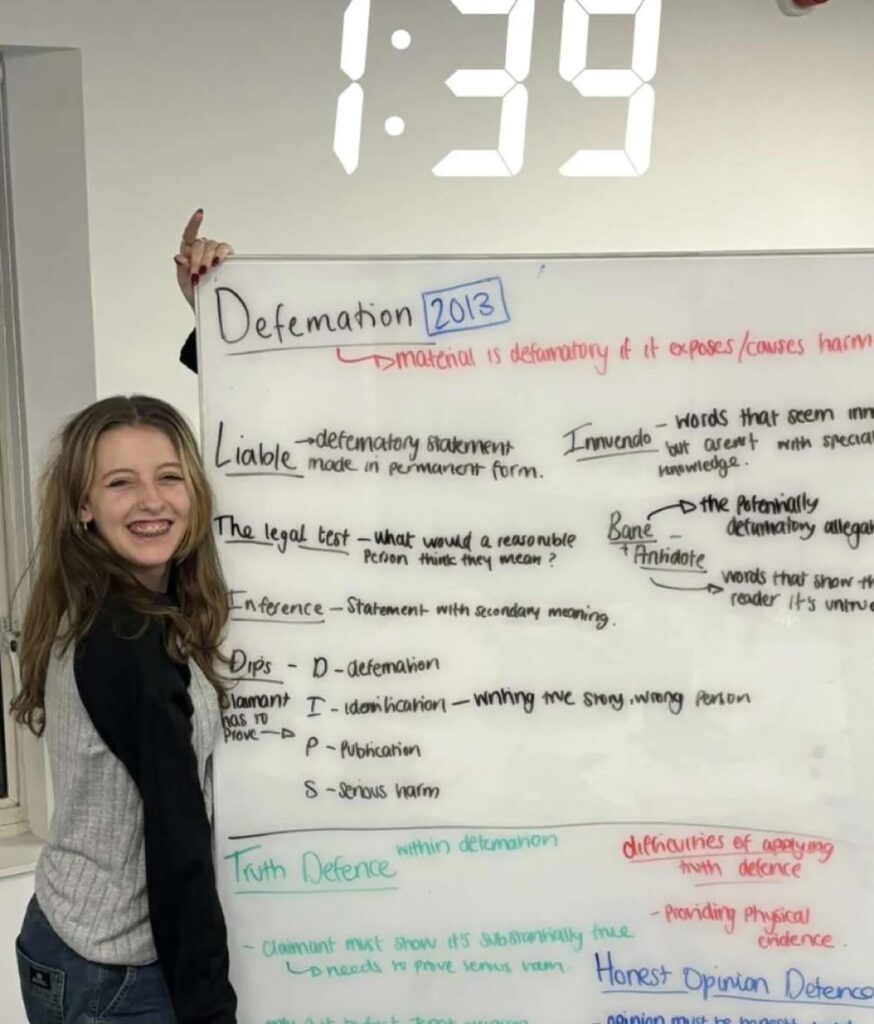 1:39
Defemation 2013
material is defamatory if it exposes/causes harm
Liable → defematory statement
made in permanent form.
Innuendo - words that seem
but arent with
knowledge.
The legal test - what would a reasonable
Person think they mean?
Bane → the potentially
defumatory
+ Antidote → words that show
reader it's untrue
Inference - Statement with secondary meaning.
Dips - D - defemation
Claimant
has to
prove → I - identification - writing true story, wrong person
P - Publication
S - serious harm
Truth Defence within defemation
- Claimant must show it's substantially true
needs to prove serious harm.
difficulties of applying
truth defence
- Providing Physical
evidence.
Honest Opinion Defence
- opinion must be honest